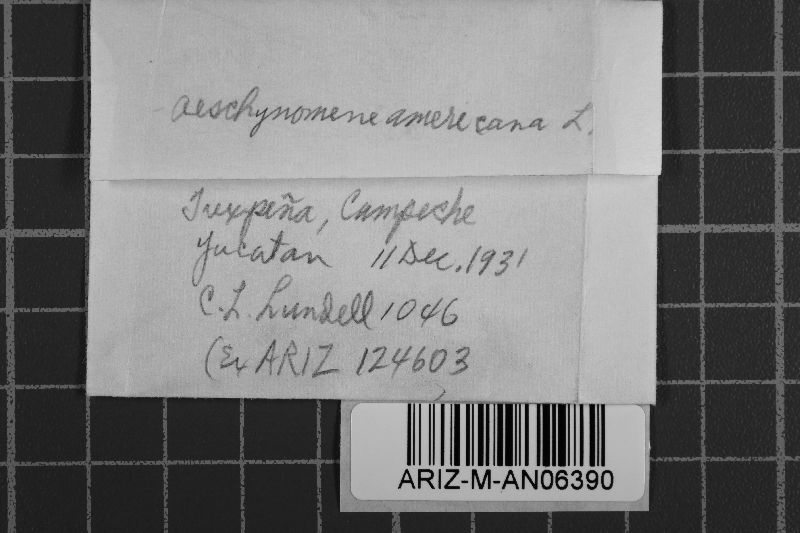 Aeschynomene americana L.
Tuxpeña, Campeche
Yucatan 11 Dec. 1931
C. L. Lundell 1046
(Ex ARIZ 124603
)
ARIZ-M-AN06390